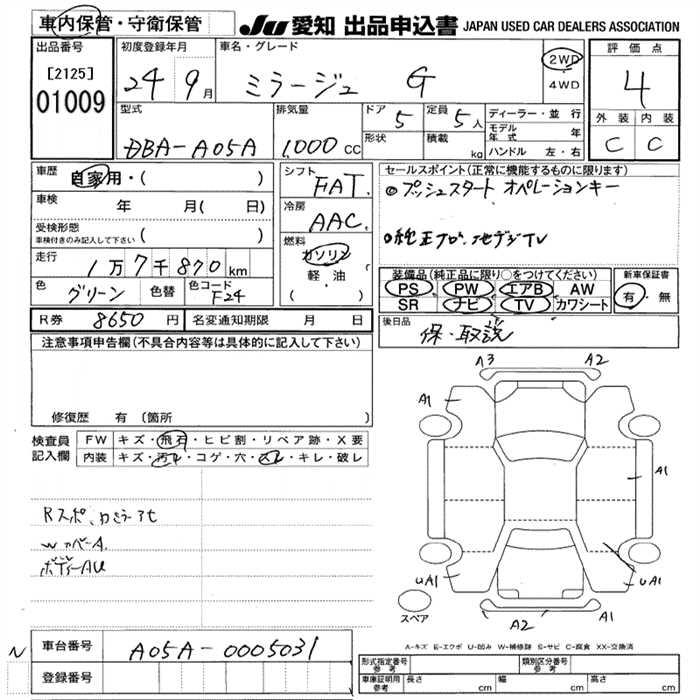 車内保管・守衛保管 JU 愛知 出品申込書 JAPAN USED CAR DEALERS ASSOCIATION
出品番号
[2125]
01009
初度登録年月
24年 9月
車名・グレード
ミラージュ G
2WD
4WD
評価点
4
外装 内装
C C
型式
DBA-A05A
排気量
1,000 cc
ドア 5
形状
定員 5人
積載 kg
ディーラー・並行
モデル年式 年
ハンドル 左・右
車歴 自家用・( )
車検 年 月( 日)
受検形態 ( )
車検付きのみ記入して下さい
走行 1万7千870km
色 グリーン 色替 色コード F24
シフト FAT
冷房 AAC
燃料 ガソリン
軽・油
( )
セールスポイント(正常に機能するものに限ります)
◎プッシュスタート オペレーションキー
○純正ナビ、地デジTV
装備品(純正品に限り○をつけてください)
PS PW エアB AW
SR ナビ TV カワシート
新車保証書
有・無
R券 8650円 名変通知期限 月 日
後日品 保・取説
注意事項申告欄(不具合内容等は具体的に記入して下さい)
修復歴 有 (箇所
検査員記入欄
FW キズ・飛石・ヒビ割・リペア跡・X要
内装 キズ・汚レ・コゲ・穴・スレ・キレ・破レ
Rスポ、
WカバーA.
ボディーAU
A3 A2
A1
A1
UA1 UA1
A2 A1
スペア
A-キズ E-エクボ U-凹み W-補修跡 S-サビ C-腐食 XX-交換済
N
車台番号 A05A-0005031
登録番号
形式指定番号 参考 類別区分番号 参考
車庫証明用 参考 長さ cm 幅 cm 高さ cm